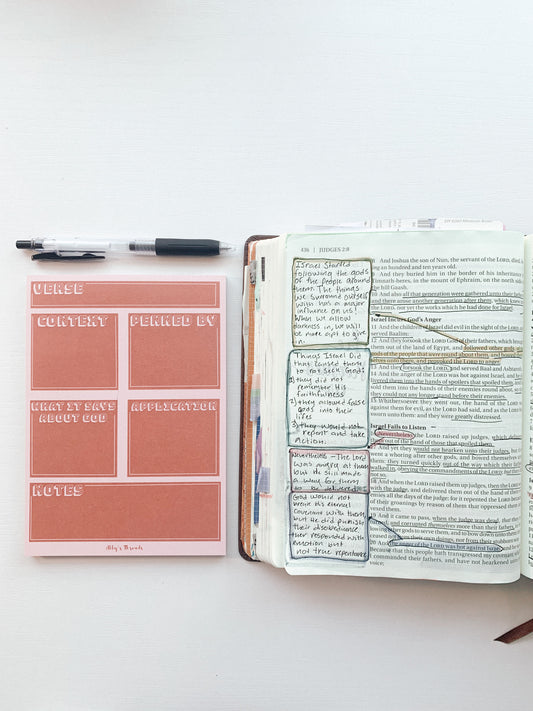 VERSE
CONTEXT
PENNED BY
WHAT IT SAYS
ABOUT GOD
APPLICATION
NOTES
436 | JUDGES 2:8
Israel started
following the gods
of the people around
them. The things
we surround ourself
with has a major
influence on us!
When we allow
darkness in, we will
be more apt to give
in.
Things Israel Did
that caused them
to not seek God:
1) they did not
remember His
faithfulness
2) they allowed false
gods into their
lives
3) they would not
repent and take
action.
Nevertheless - The Lord
was angry at them
but He still made
a way for them
to be delivered!
God would not
break His eternal
Covenant with them,
but He did punish
their disobedience.
they responded with
emotion but
not true repentance
And Joshua the son of Nun, the servant of the LORD,
ing an hundred and ten years old.
And they buried him in the border of his inheritance
in the mount of Ephraim, on the north side
the hill Gaash.
10 And also all that generation were gathered unto their
and there arose another generation after them, which knew
LORD, nor yet the works which he had done for Israel.
Israel Incites God's Anger
11 And the children of Israel did evil in the sight of the LORD,
12 And they forsook the LORD God of their fathers, which brought
them out of the land of Egypt, and followed other gods, of
gods of the people that were round about them, and bowed
selves unto them, and provoked the LORD to anger.
13 And they forsook the LORD, and served Baal and Ashtaroth.
14 And the anger of the LORD was hot against Israel, and he
delivered them into the hands of spoilers that spoiled them, and
sold them into the hands of their enemies round about, so
they could not any longer stand before their enemies.
15 Whithersoever they went out, the hand of the LORD
against them for evil, as the LORD had said, and as the LORD
sworn unto them: and they were greatly distressed.
Israel Fails to Listen
Nevertheless the LORD raised up judges, which
out of the hand of those that spoiled them.
17 And yet they would not hearken unto their judges, but they
went a whoring after other gods, and bowed themselves
them: they turned quickly out of the way which their
walked in, obeying the commandments of the LORD;
not so.
18 And when the LORD raised them up judges, then the LORD
with the judge, and delivered them out of the hand of their
enemies all the days of the judge: for it repented the LORD
of their groanings by reason of them that oppressed them
vexed them.
19 And it came to pass, when the judge was dead, that they
and corrupted themselves more than their fathers, in
following other gods to serve them, and to bow down unto them;
ceased not from their own doings, nor from their stubborn
20 And the anger of the LORD was hot against Israel;
Because that this people hath transgressed my covenant
I commanded their fathers, and have not hearkened unto
voice;